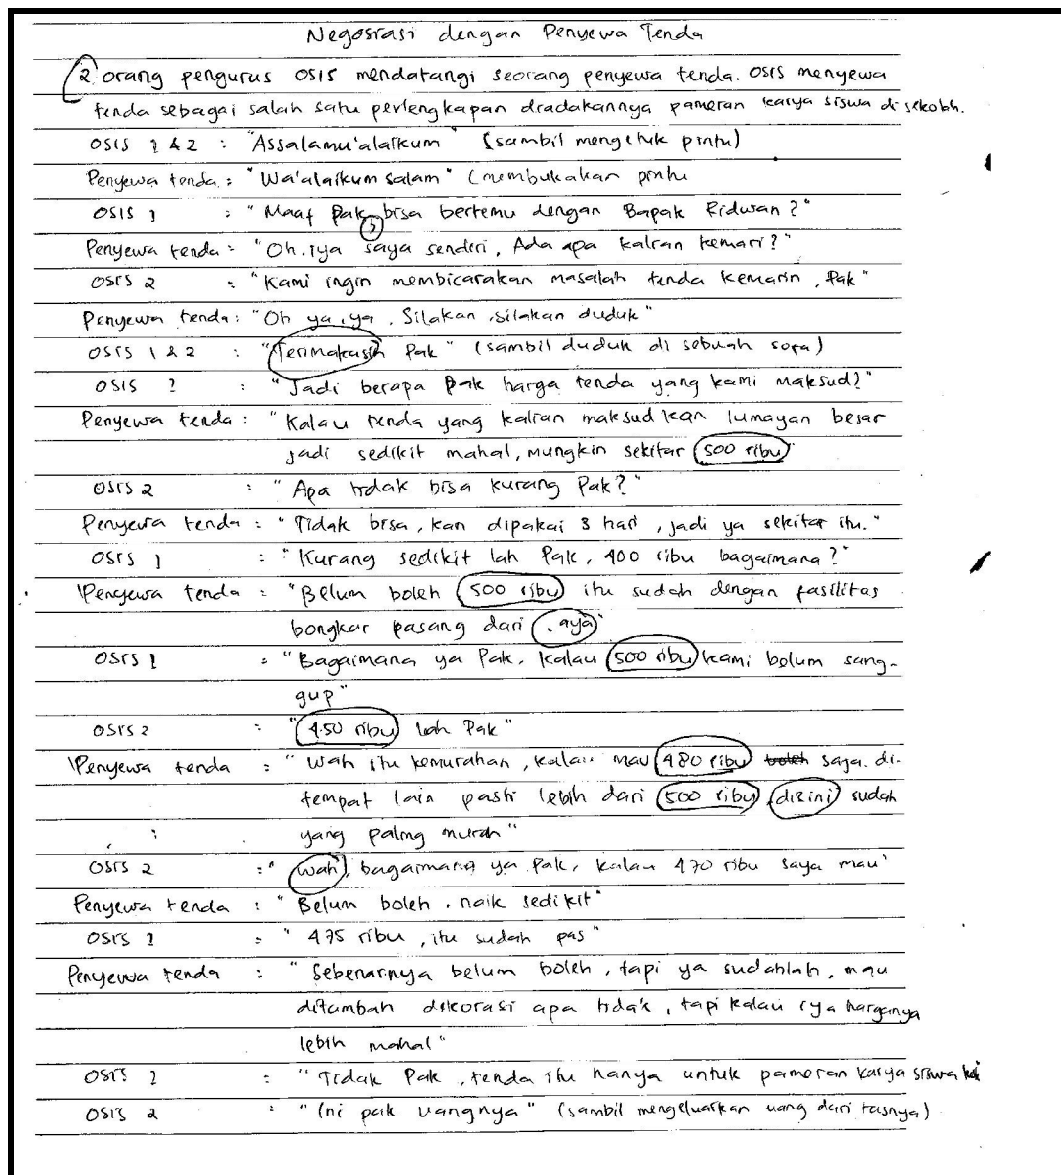 Negosiasi dengan Penyewa Tenda
2 orang pengurus OSIS mendatangi seorang penyewa tenda. OSIS menyewa
tenda sebagai salah satu perlengkapan diadakannya pameran karya siswa di sekolah.
OSIS 1 & 2 : "Assalamu'alaikum" (sambil mengetuk pintu)
Penyewa tenda : "Wa'alaikum salam" (membukakan pintu
OSIS 1 : "Maaf Pak, bisa bertemu dengan Bapak Ridwan ?"
Penyewa tenda : "Oh. iya saya sendiri, Ada apa kalian kemari ?"
OSIS 2 : "Kami ingin membicarakan masalah tenda kemarin, Pak"
Penyewa tenda : "Oh ya, ya. Silakan, silakan duduk"
OSIS 1 & 2 : "Terimakasih Pak" (sambil duduk di sebuah sofa)
OSIS 1 : "Jadi berapa Pak harga tenda yang kami maksud?"
Penyewa tenda : "Kalau tenda yang kalian maksud kan lumayan besar
jadi sedikit mahal, mungkin sekitar 500 ribu"
OSIS 2 : "Apa tidak bisa kurang Pak?"
Penyewa tenda : "Tidak bisa, kan dipakai 3 hari, jadi ya sekitar itu."
OSIS 1 : "Kurang sedikit lah Pak, 400 ribu bagaimana ?"
Penyewa tenda : "Belum boleh 500 ribu itu sudah dengan fasilitas
bongkar pasang dari
OSIS 1 : "Bagaimana ya Pak, kalau 500 ribu kami belum sang-
gup"
OSIS 2 : "450 ribu lah Pak"
Penyewa tenda : "Wah itu kemurahan, kalau mau 480 ribu boleh saja. di-
tempat lain pasti lebih dari 500 ribu, disini sudah
yang paling murah"
OSIS 2 : "Wah, bagaimana ya Pak, kalau 470 ribu saya mau"
Penyewa tenda : "Belum boleh, naik sedikit"
OSIS 1 : "475 ribu, itu sudah pas"
Penyewa tenda : "Sebenarnya belum boleh, tapi ya sudahlah, mau
ditambah dekorasi apa tidak, tapi kalau iya harganya
lebih mahal"
OSIS 1 : "Tidak Pak, tenda itu hanya untuk pameran karya siswa
OSIS 2 : "Ini pak uangnya" (sambil mengeluarkan uang dari tasnya)